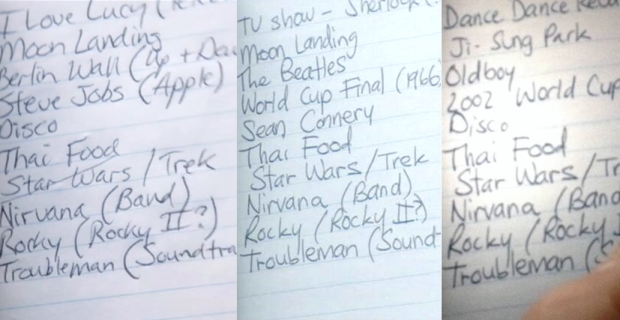 I Love Lucy (
Moon Landing
Berlin Wall (Up + Da
Steve Jobs (Apple)
Disco
Thai Food
Star Wars / Trek
Nirvana (Band)
Rocky (Rocky II?)
Troubleman (Soundtra
TV show - Sherlock (
Moon Landing
The Beatles
World Cup Final (1966
Sean Connery
Thai Food
Star Wars / Trek
Nirvana (Band)
Rocky (Rocky II?)
Troubleman (Sound
Dance Dance
Ji-Sung Park
Oldboy
2002 World Cup
Disco
Thai Food
Star Wars / Tr
Nirvana (Band
Rocky (Rocky
Troubleman (S